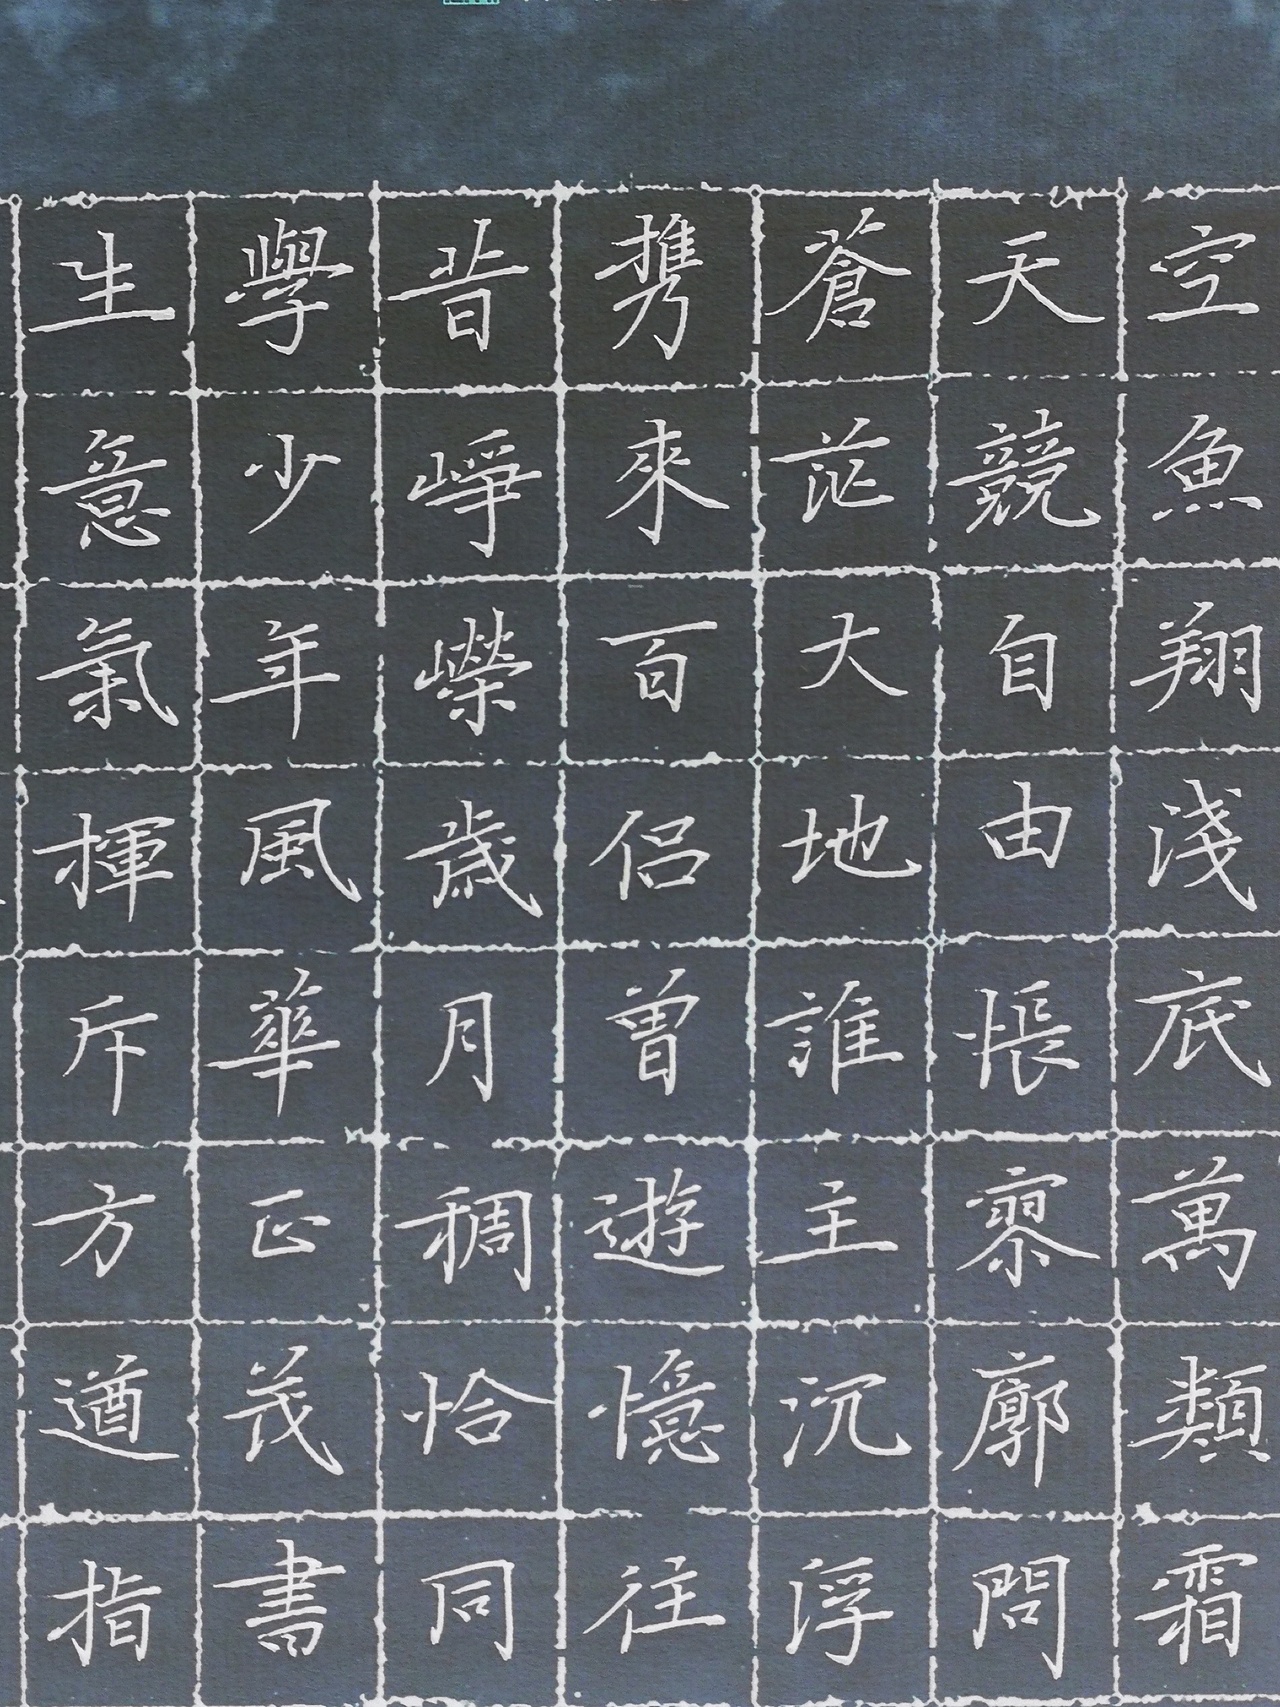 空魚翔淺底萬類霜
天競自由悵寥廓問
蒼茫大地誰主沉浮
携來百侶曾遊憶往
昔崢嶸歲月稠恰同
學少年風華正茂書
生意氣揮斥方遒指